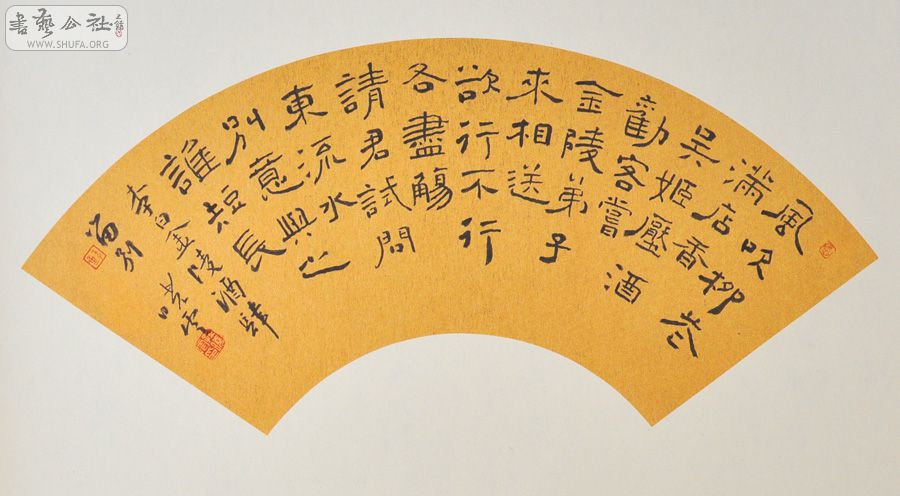 書藝公社
WWW.SHUFA.ORG
風吹柳花
滿店香
吳姬壓酒
勸客嘗
金陵弟子
來相送
欲行不行
各盡觴
請君試問
東流水
別意與之
誰短長
李白金陵酒肆
留別 曉雲